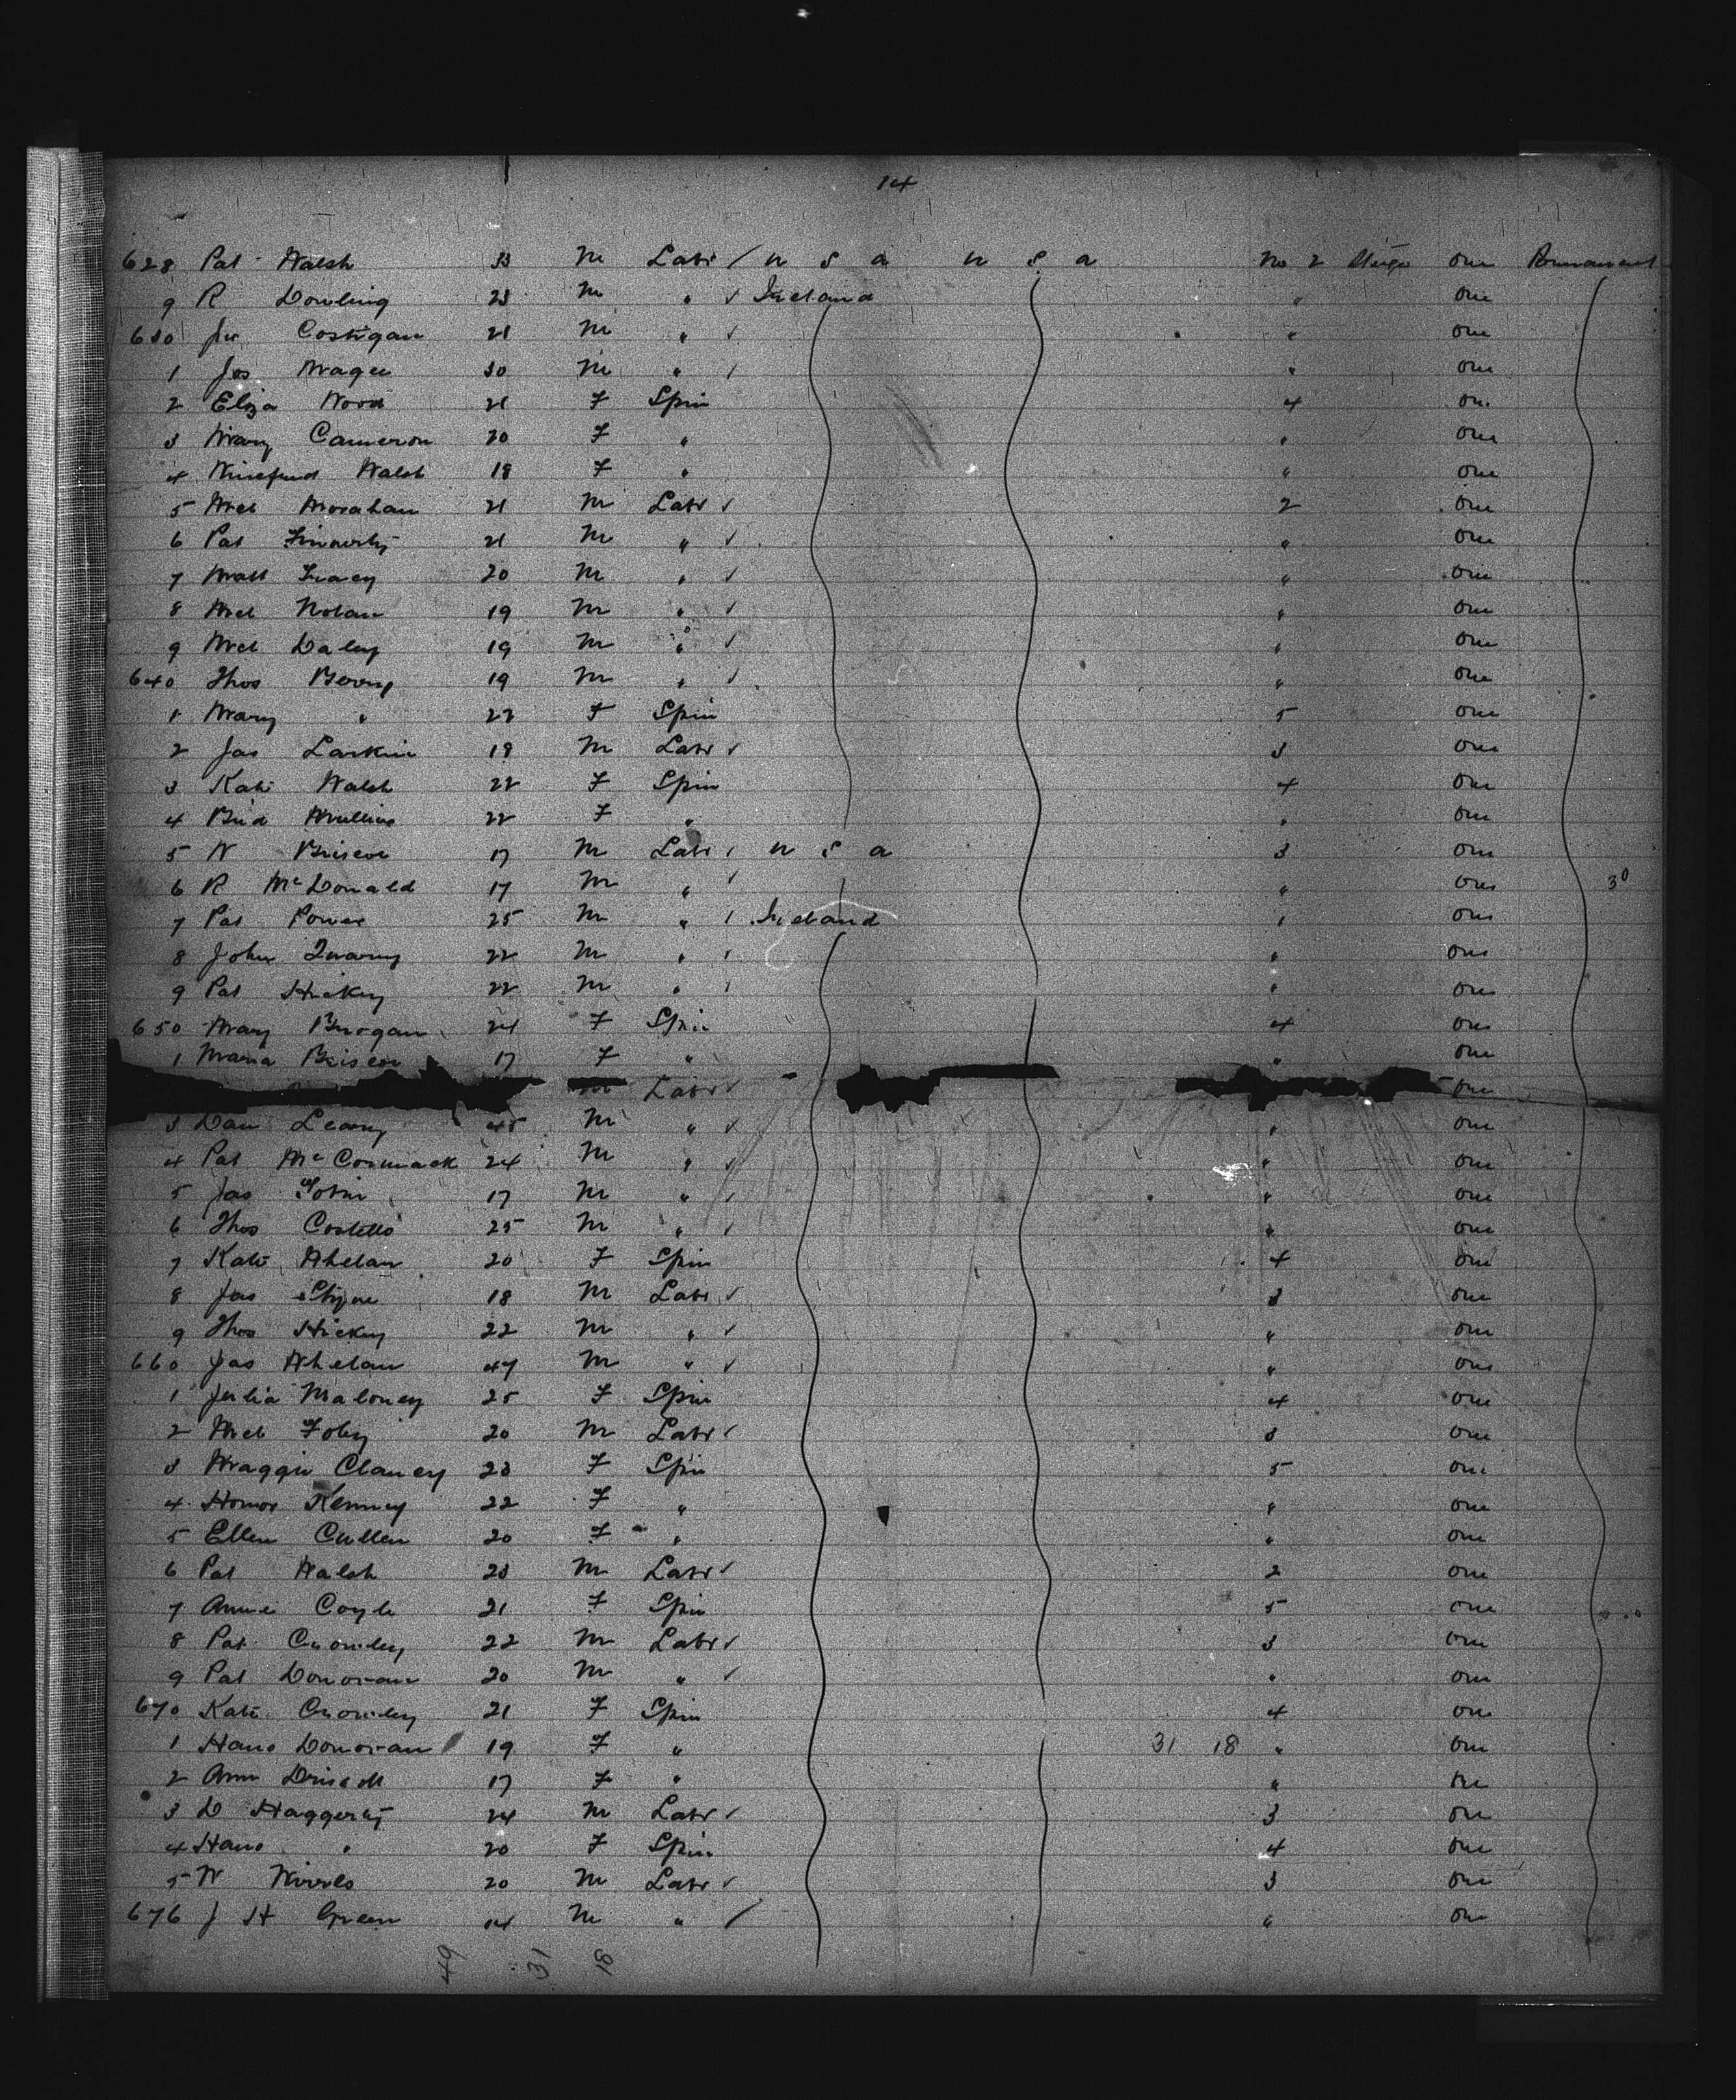 14
628 Pat Walsh 33 M Labr / U S A U S A No 2 Steige One Permanent
9 R Dowling 23 M " ✓ Ireland " One
630 Costigan 21 M " ✓ " One
1 Jos Magee 30 M " / " One
2 Eliza Wood 21 F Spin 4 One
3 Mary Cameron 20 F " " One
4 Winefred Walsh 18 F " " One
5 Mcl Morahan 21 M Labr ✓ 2 One
6 Pat Finnerty 21 M " ✓ " One
7 Matt Tracey 20 M " ✓ " One
8 Mcl Nolan 19 M " ✓ " One
9 Mcl Daley 19 M " ✓ " One
640 Thos Berry 19 M " ✓ " One
1 Mary " 22 F Spin 5 One
2 Jas Larkin 19 M Labr ✓ 3 One
3 Kate Walsh 22 F Spin 4 One
4 Brid Mullins 22 F " " One
5 W Briscoe 17 M Labr / U S A 3 One
6 R McDonald 17 M " ✓ " One 30
7 Pat Power 25 M " / Ireland 1 One
8 John 22 M " / " One
9 Pat Hickey 22 M " / " One
650 Mary Brogan 24 F Spin 4 One
1 Maria Briscoe 17 F " " One
M Labr ✓ One
3 Dan Leary 45 M " ✓ " One
4 Pat McCormack 24 M " ✓ " One
5 Jas Tobin 17 M " ✓ " One
6 Thos Costello 25 M " ✓ " One
7 Kate Whelan 20 F Spin 4 One
8 Jas Styne 18 M Labr ✓ 3 One
9 Thos Hickey 22 M " ✓ " One
660 Jas Whelan 47 M " ✓ " One
1 Julia Maloney 25 F Spin 4 One
2 Mcl Foley 20 M Labr ✓ 3 One
3 Maggie Clancy 23 F Spin 5 One
4 Honor Kenney 22 F " " One
5 Ellen Cullen 20 F " " One
6 Pat Walsh 23 M Labr ✓ 2 One
7 Annie Coyle 21 F Spin 5 One
8 Pat Crowley 22 M Labr ✓ 3 One
9 Pat Donovan 20 M " ✓ " One
670 Kate Crowley 21 F Spin 4 One
1 Hano Donovan 19 F " 31 18 " One
2 Ann Driscoll 17 F " " One
3 D Haggerty 24 M Labr ✓ 3 One
4 Hano " 20 F Spin 4 One
5 W 20 M Labr ✓ 3 One
676 J H Green M " / " One
49 31 18